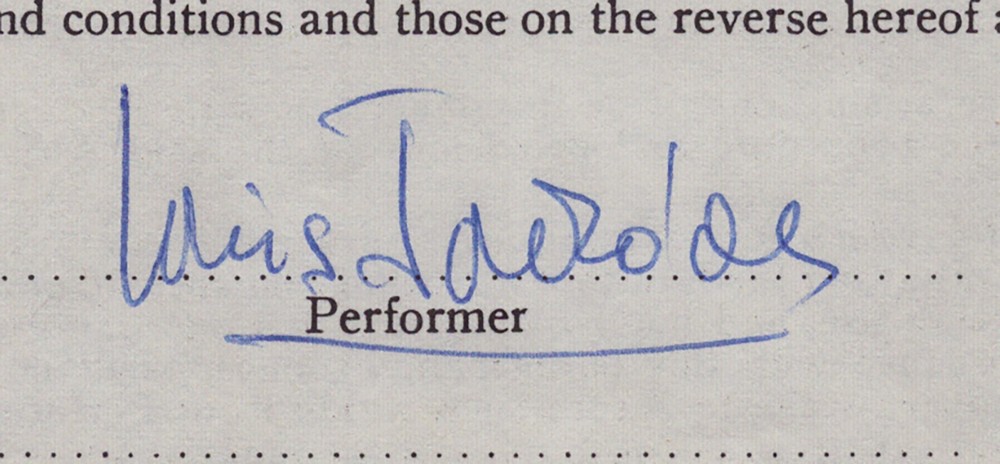 nd conditions and those on the reverse hereof
Luis
Performer